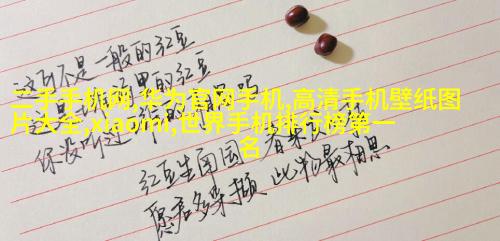 这可不是一般的红豆
这是里的红豆
二手手机网,华为官网手机,高清手机壁纸图
片大全,xiaomi,世界手机排行榜第一
名
你没听过
红豆生南国 春来
愿君多采撷 此物最相思